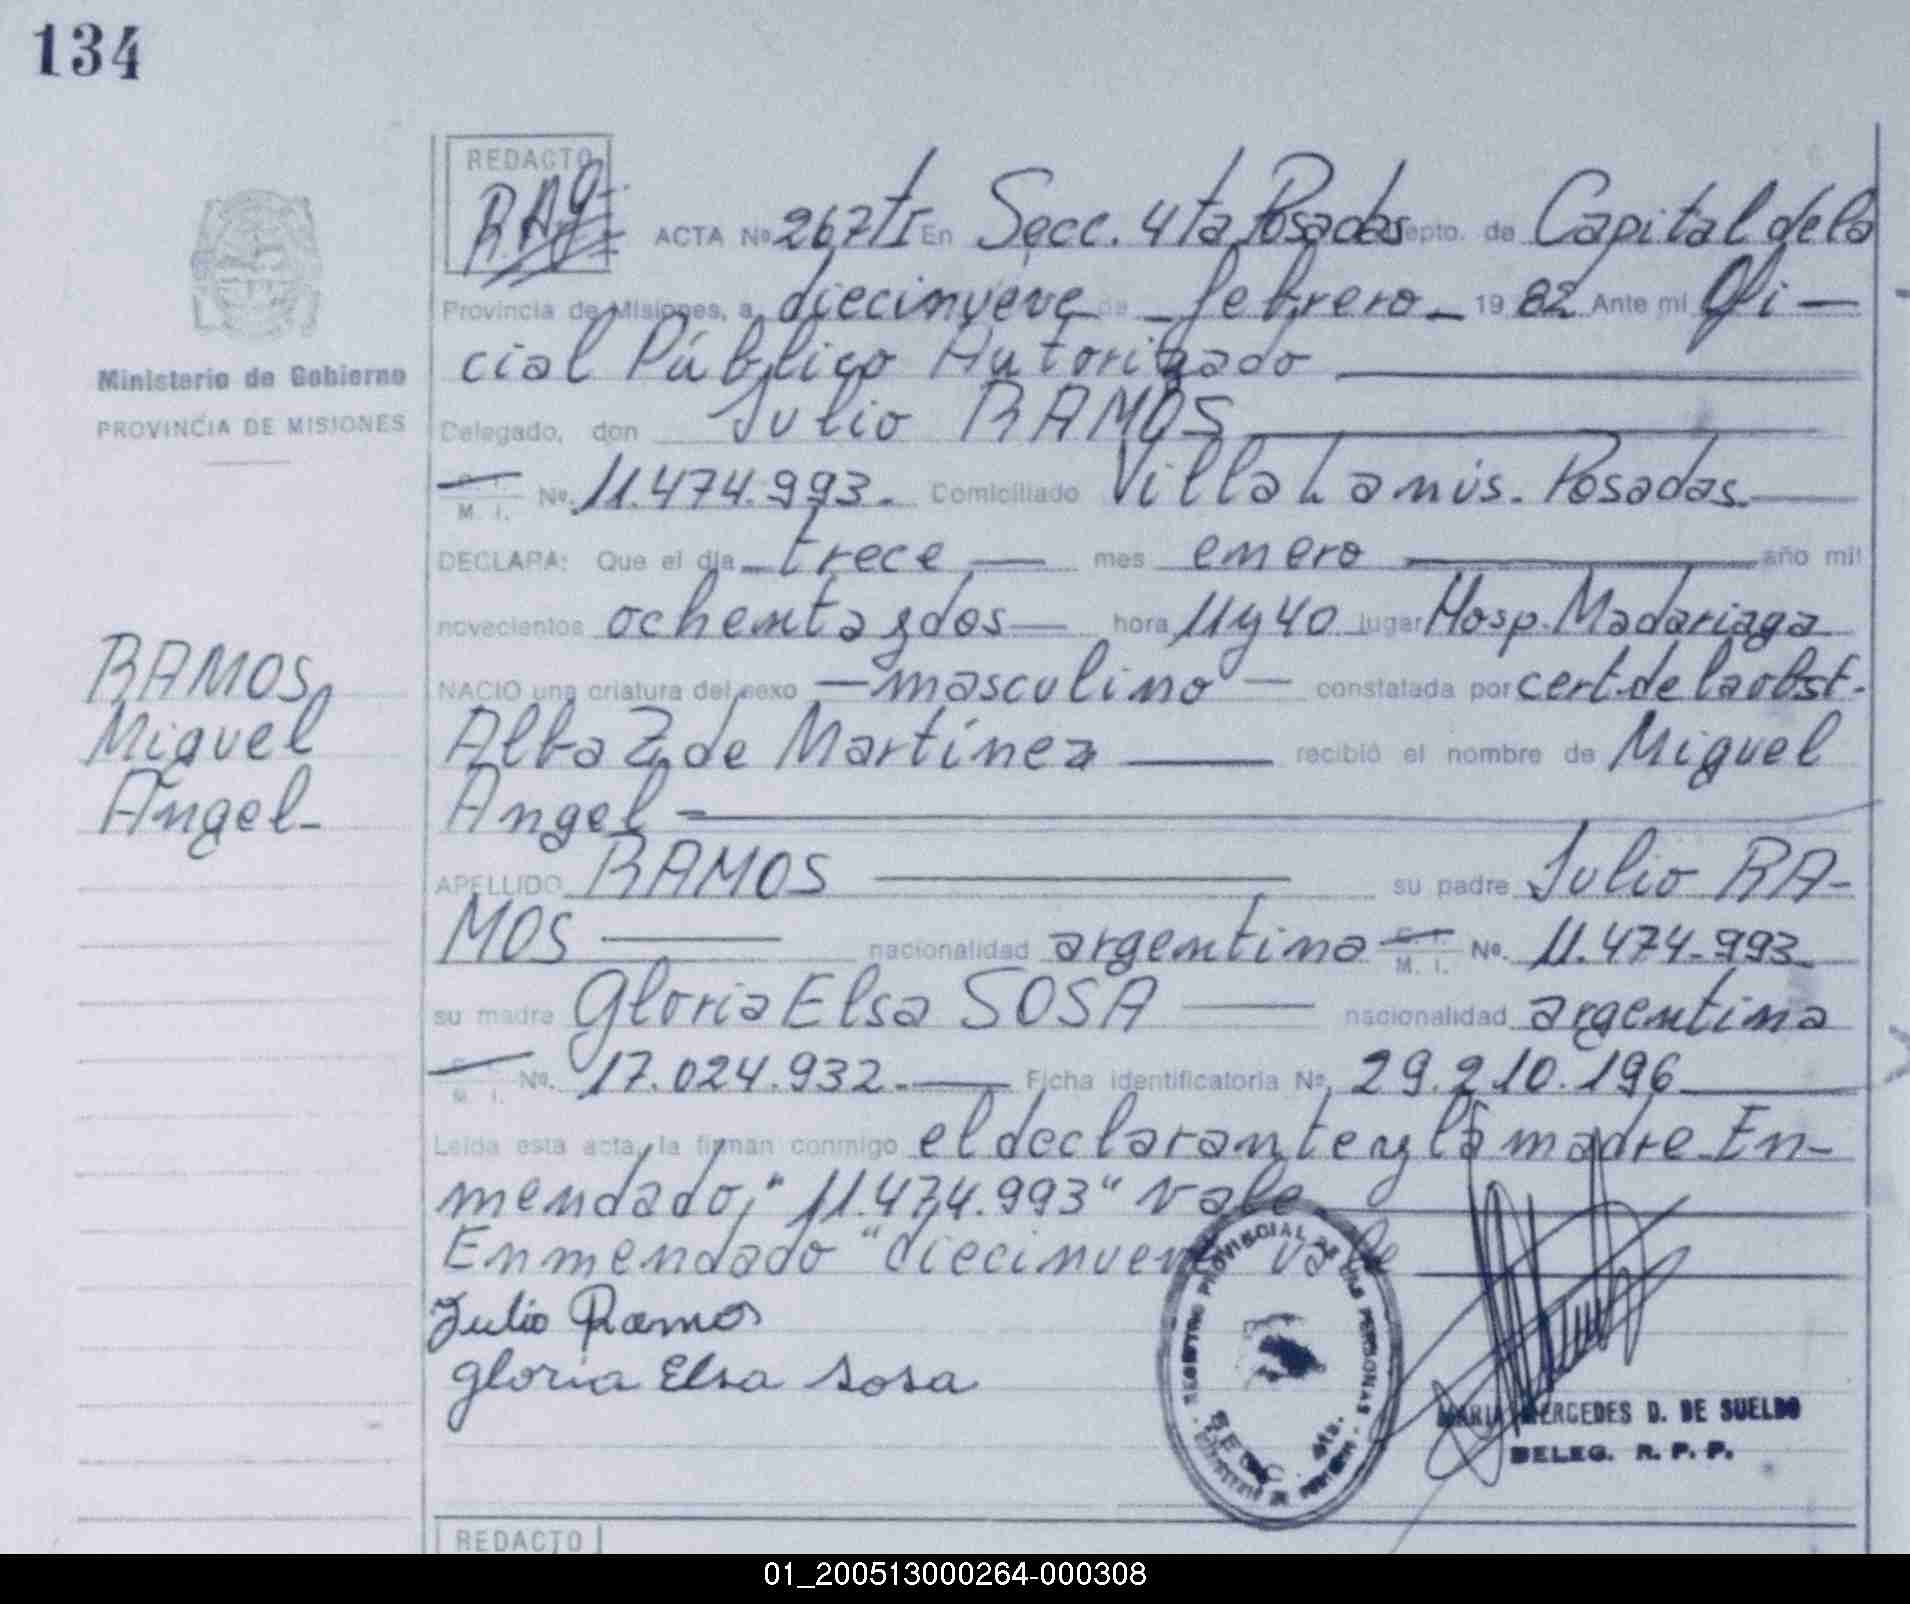 134
REDACTO
ACTA Nº 267 tI En Secc. 4ta Posadas epto. de Capital de la
Provincia de Misiones, a diecinueve de febrero 1982 Ante mi Ofi-
cial Público Autorizado
Ministerio de Gobierno
PROVINCIA DE MISIONES
Delegado, don Julio RAMOS
M. I. Nº. 11.474.993. Domiciliado Villa Lanús. Posadas.
DECLARA: Que el día trece mes enero año mil
novecientos ochenta y dos hora 11 y 40 lugar Hosp. Madariaga
NACIO una criatura del sexo masculino constatada por cert. de la obst.
Alba Z. de Martínez recibió el nombre de Miguel
Angel
RAMOS
Miguel
Angel
APELLIDO RAMOS su padre Julio RA-
MOS nacionalidad argentina M. I. Nº. 11.474.993
su madre Gloria Elsa SOSA nacionalidad argentina
M. I. Nº. 17.024.932. Ficha identificatoria Nº. 29.210.196
Leída esta acta, la firman conmigo el declarante y la madre. En-
mendado, "11.474.993" vale
Enmendado "diecinueve vale
Julio Ramos
gloria Elsa Sosa
REGISTRO PROVINCIAL DE LAS PERSONAS
SECC. 4ta.
MARIA MERCEDES D. DE SUELDO
DELEG. R. P. P.
REDACTO
01_200513000264-000308